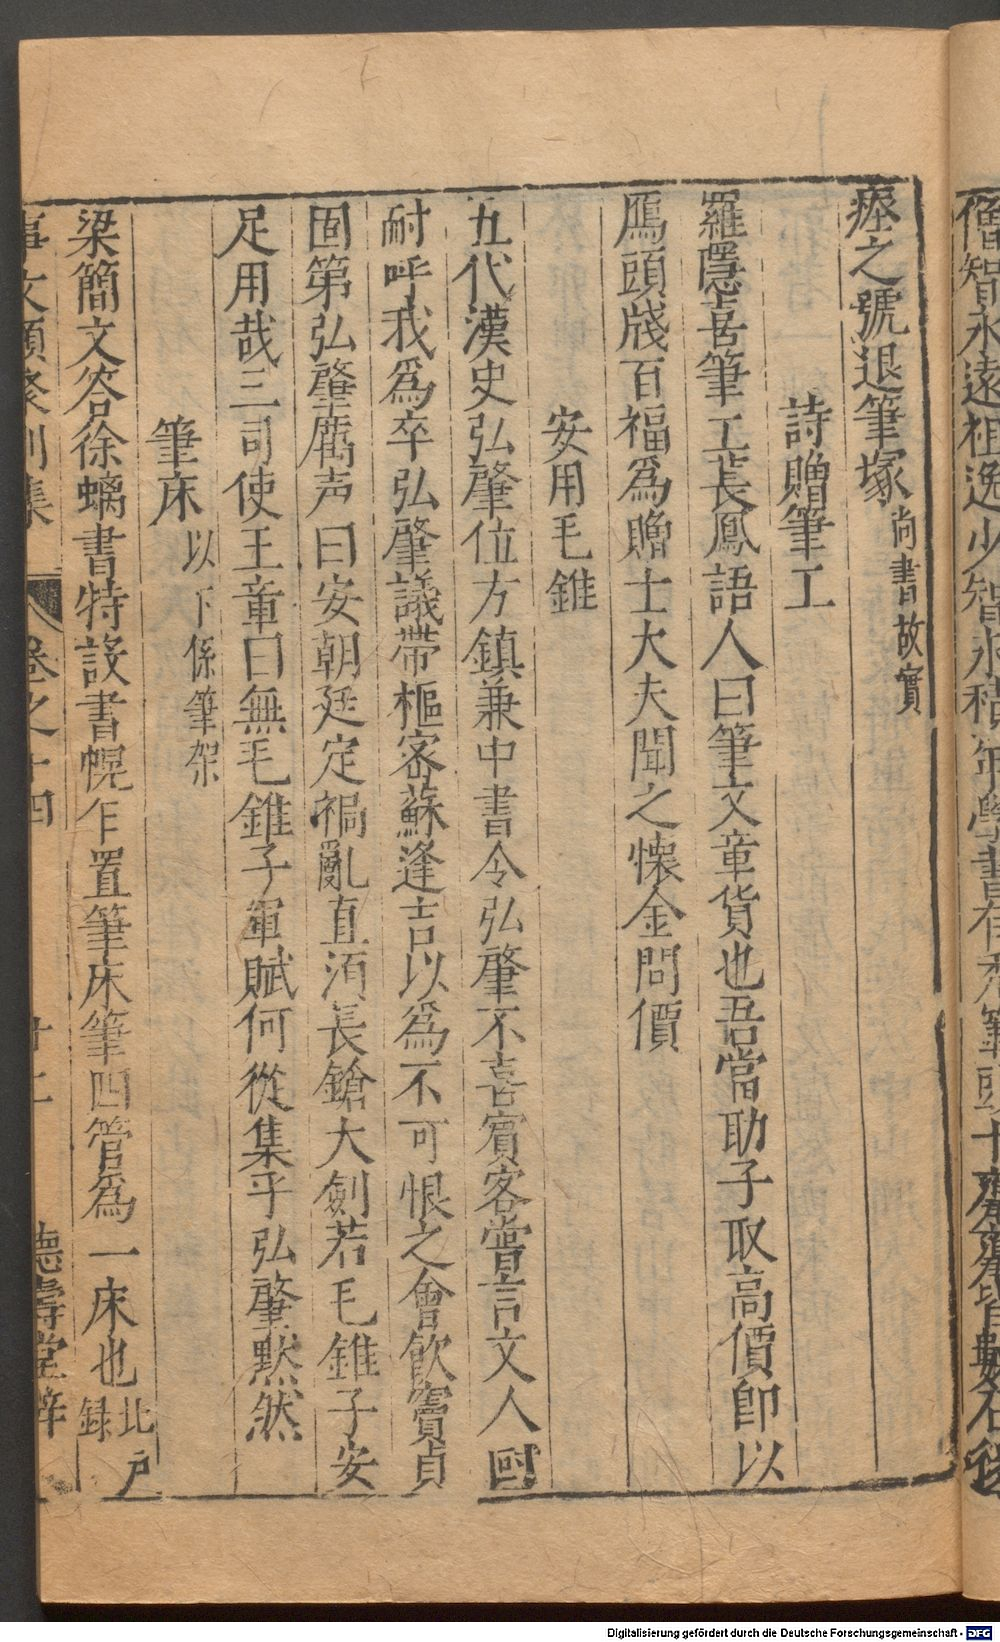 僧智永遠祖逸少智永積年學書有禿筆頭十瓮瓮皆數石後
瘞之號退筆塚尚書故實
詩贈筆工
羅隱喜筆工萇鳳語人曰筆文章貨也吾當助子取高價即以
鴈頭牋百福爲贈士大夫聞之懷金問價
安用毛錐
五代漢史弘肇位方鎮兼中書令弘肇不喜賓客嘗言文人囯
耐呼我爲卒弘肇議帶樞密蘇逢吉以爲不可恨之會飲竇貞
固第弘肇厲声曰安朝廷定禍亂直湏長鎗大劍若毛錐子安
足用哉三司使王章曰無毛錐子軍賦何從集乎弘肇黙然
筆床以下係筆架
梁簡文答徐螭書特設書幌乍置筆床筆四管爲一床也北戸録
事文類聚別集 卷之十四 廿二 德壽堂梓
Digitalisierung gefördert durch die Deutsche Forschungsgemeinschaft - DFG